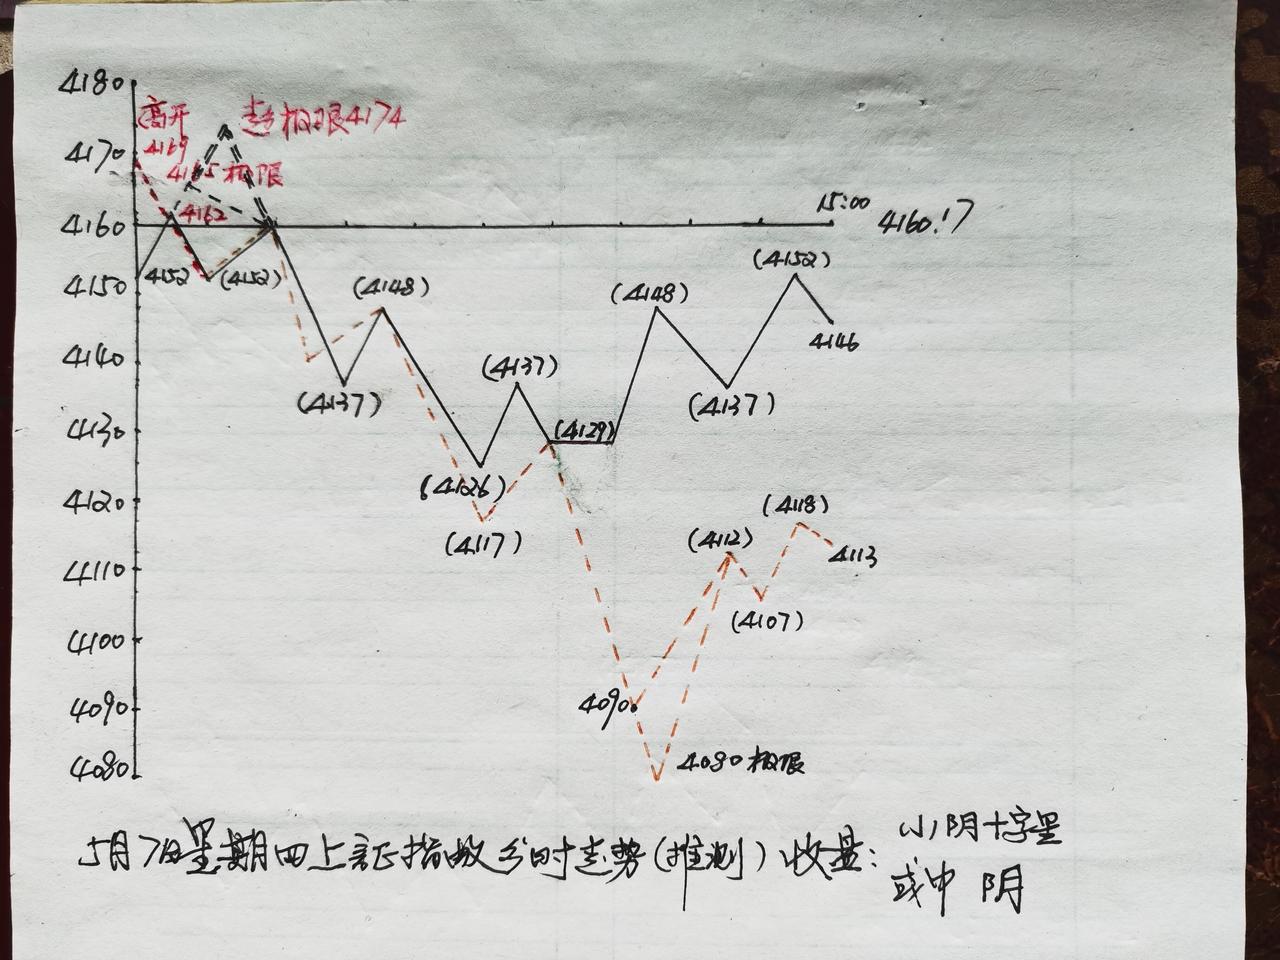 4180
高开
超极限4174
4170
4169
4165极限
4162
15:00
4160
4160.17
4152
(4152)
(4152)
4150
(4148)
(4148)
4146
4140
(4137)
(4137)
(4137)
4130
(4129)
(4126)
4120
(4118)
(4117)
(4112)
4113
4110
(4107)
4100
4090
4090
4080极限
4080
5月7日星期四上证指数分时走势(推测)收盘:小阴十字星
或中阴